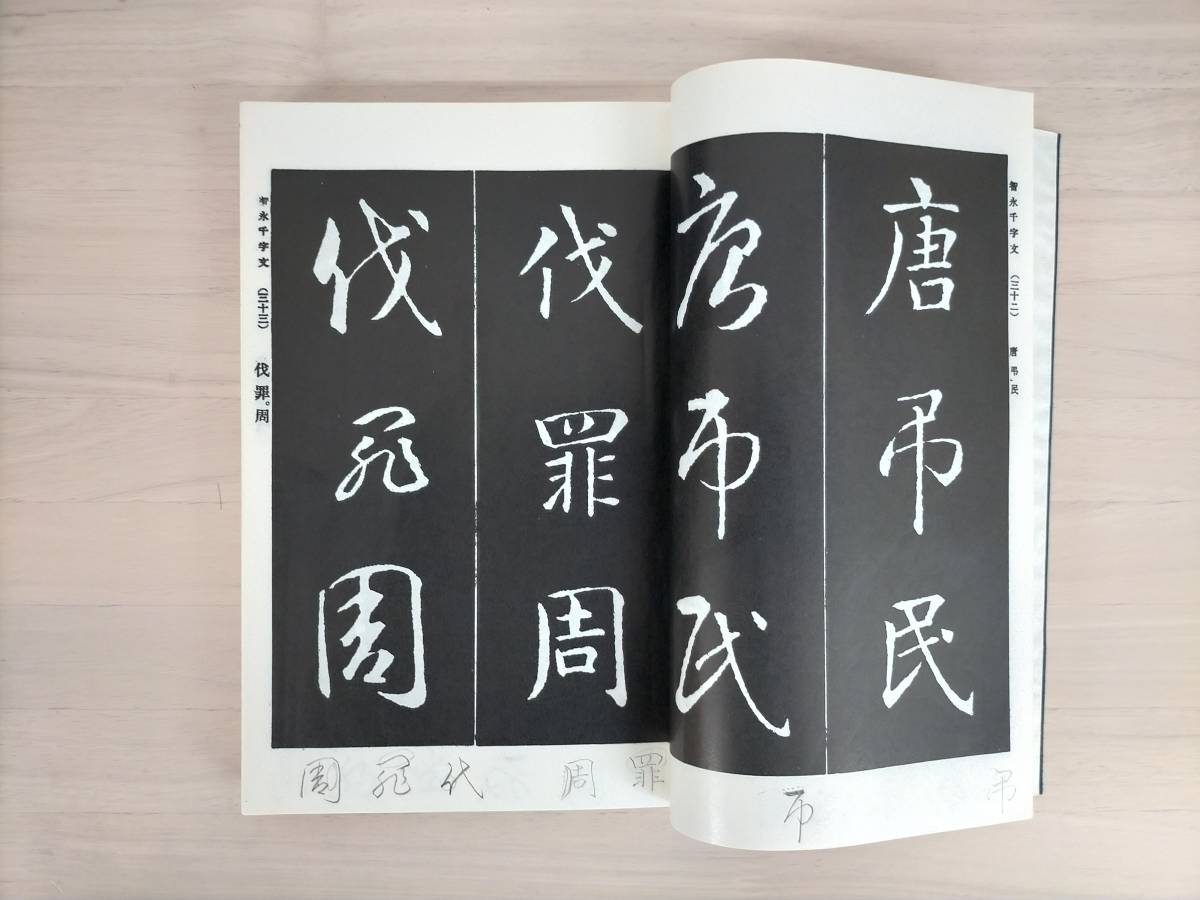 智永千字文 (三十二) 唐 弔.民
唐弔民
唐弔民
弔
弔
罪周
伐罪周
伐罪周
代罪周
智永千字文 (三十三) 伐 罪。周